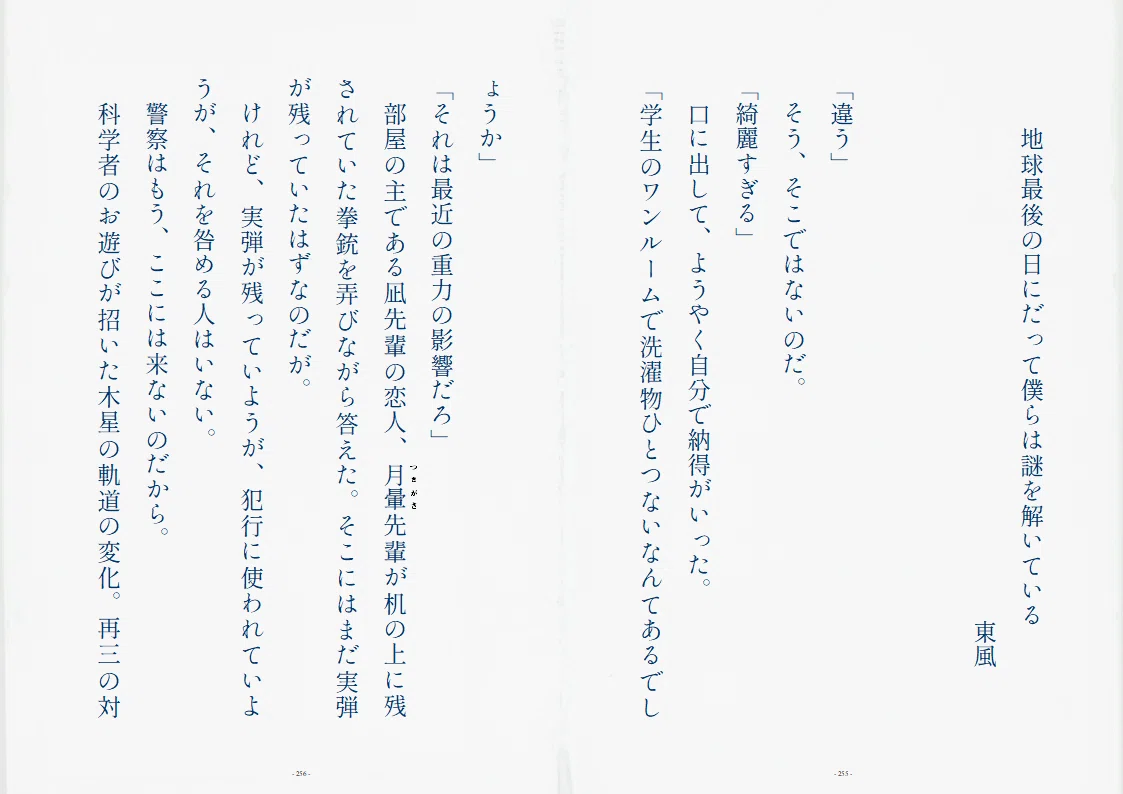 地球最後の日にだって僕らは謎を解いている
東風
「違う」
そう、そこではないのだ。
「綺麗すぎる」
口に出して、ようやく自分で納得がいった。
「学生のワンルームで洗濯物ひとつないなんてあるでし
- 255 -
ょうか」
「それは最近の重力の影響だろ」
部屋の主である凪先輩の恋人、月暈先輩が机の上に残
つきがさ
されていた拳銃を弄びながら答えた。そこにはまだ実弾
が残っていたはずなのだが。
けれど、実弾が残っていようが、犯行に使われていよ
うが、それを咎める人はいない。
警察はもう、ここには来ないのだから。
科学者のお遊びが招いた木星の軌道の変化。再三の対
- 256 -